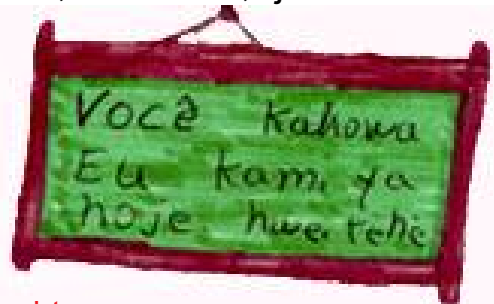 VOCÊ Kahowa
Eu kami ya
hoje hwei tehe